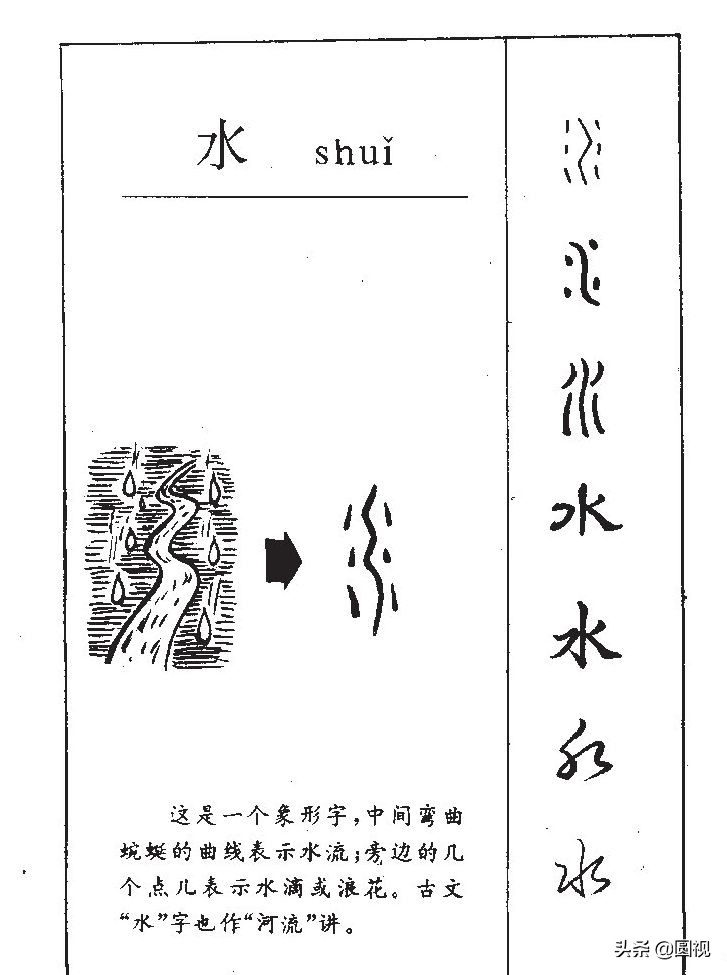 水 shuǐ
这是一个象形字，中间弯曲
蜿蜒的曲线表示水流；旁边的几
个点儿表示水滴或浪花。古文
“水”字也作“河流”讲。
水
水
水
水
水
水
水
头条 @圆视